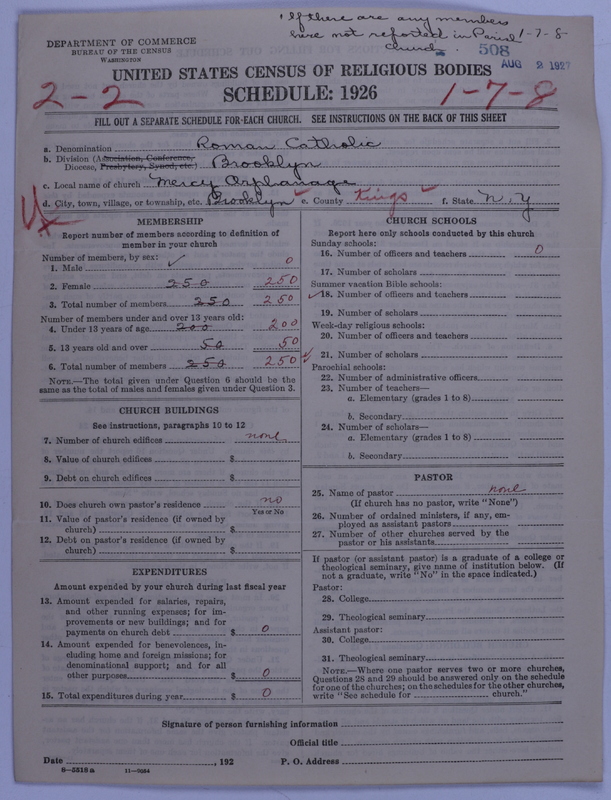 If there are any members
here not reported in Parish 1-7-8
Church.
508
AUG 2 1927
DEPARTMENT OF COMMERCE
BUREAU OF THE CENSUS
WASHINGTON
UNITED STATES CENSUS OF RELIGIOUS BODIES
2-2 SCHEDULE: 1926 1-7-8
FILL OUT A SEPARATE SCHEDULE FOR EACH CHURCH. SEE INSTRUCTIONS ON THE BACK OF THIS SHEET
a. Denomination Roman Catholic
b. Division (Association, Conference,
Diocese, Presbytery, Synod, etc.) Brooklyn
c. Local name of church Mercy Orphanage
d. City, town, village, or township, etc. Brooklyn e. County Kings f. State N.Y
MEMBERSHIP
Report number of members according to definition of
member in your church
Number of members, by sex:
1. Male 0
2. Female 250 250
3. Total number of members 250 250
Number of members under and over 13 years old:
4. Under 13 years of age 200 200
5. 13 years old and over 50 50
6. Total number of members 250 250
NOTE.—The total given under Question 6 should be the
same as the total of males and females given under Question 3.
CHURCH BUILDINGS
See instructions, paragraphs 10 to 12
7. Number of church edifices none
8. Value of church edifices $
9. Debt on church edifices $
10. Does church own pastor's residence? no
Yes or No
11. Value of pastor's residence (if owned by
church) $
12. Debt on pastor's residence (if owned by
church) $
EXPENDITURES
Amount expended by your church during last fiscal year
13. Amount expended for salaries, repairs,
and other running expenses; for im-
provements or new buildings; and for
payments on church debt $ 0
14. Amount expended for benevolences, in-
cluding home and foreign missions; for
denominational support; and for all
other purposes $ 0
15. Total expenditures during year $ 0
CHURCH SCHOOLS
Report here only schools conducted by this church
Sunday schools:
16. Number of officers and teachers 0
17. Number of scholars
Summer vacation Bible schools:
18. Number of officers and teachers
19. Number of scholars
Week-day religious schools:
20. Number of officers and teachers
21. Number of scholars
Parochial schools:
22. Number of administrative officers
23. Number of teachers—
a. Elementary (grades 1 to 8)
b. Secondary
24. Number of scholars—
a. Elementary (grades 1 to 8)
b. Secondary
PASTOR
25. Name of pastor none
(If church has no pastor, write "None")
26. Number of ordained ministers, if any, em-
ployed as assistant pastors
27. Number of other churches served by the
pastor or his assistants
If pastor (or assistant pastor) is a graduate of a college or
theological seminary, give name of institution below. (If
not a graduate, write "No" in the space indicated.)
Pastor:
28. College
29. Theological seminary
Assistant pastor:
30. College
31. Theological seminary
NOTE.—Where one pastor serves two or more churches,
Questions 28 and 29 should be answered only on the schedule
for one of the churches; on the schedules for the other churches,
write "See schedule for church."
Signature of person furnishing information
Official title
Date , 192 P. O. Address
6—5518 a 11—9054